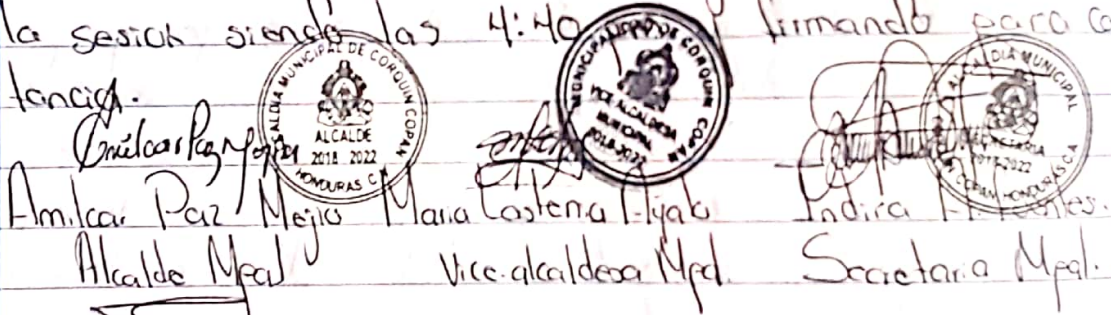 la sesion siendo las 4:40 firmando para co
tancia.
Amilcar Paz Mejia
ALCALDIA MUNICIPAL DE CORQUIN COPAN
ALCALDE
2018 2022
HONDURAS C
MUNICIPALIDAD DE CORQUIN COPAN
VICE ALCALDESA
MUNICIPAL
2018-2022
ALCALDIA MUNICIPAL
SECRETARIA
2017-2022
COPAN HONDURAS C.A
Amilcar Paz Mejia Maria Ayala Indira
Alcalde Mpal Vice-alcaldesa Mpal. Secretaria Mpal.